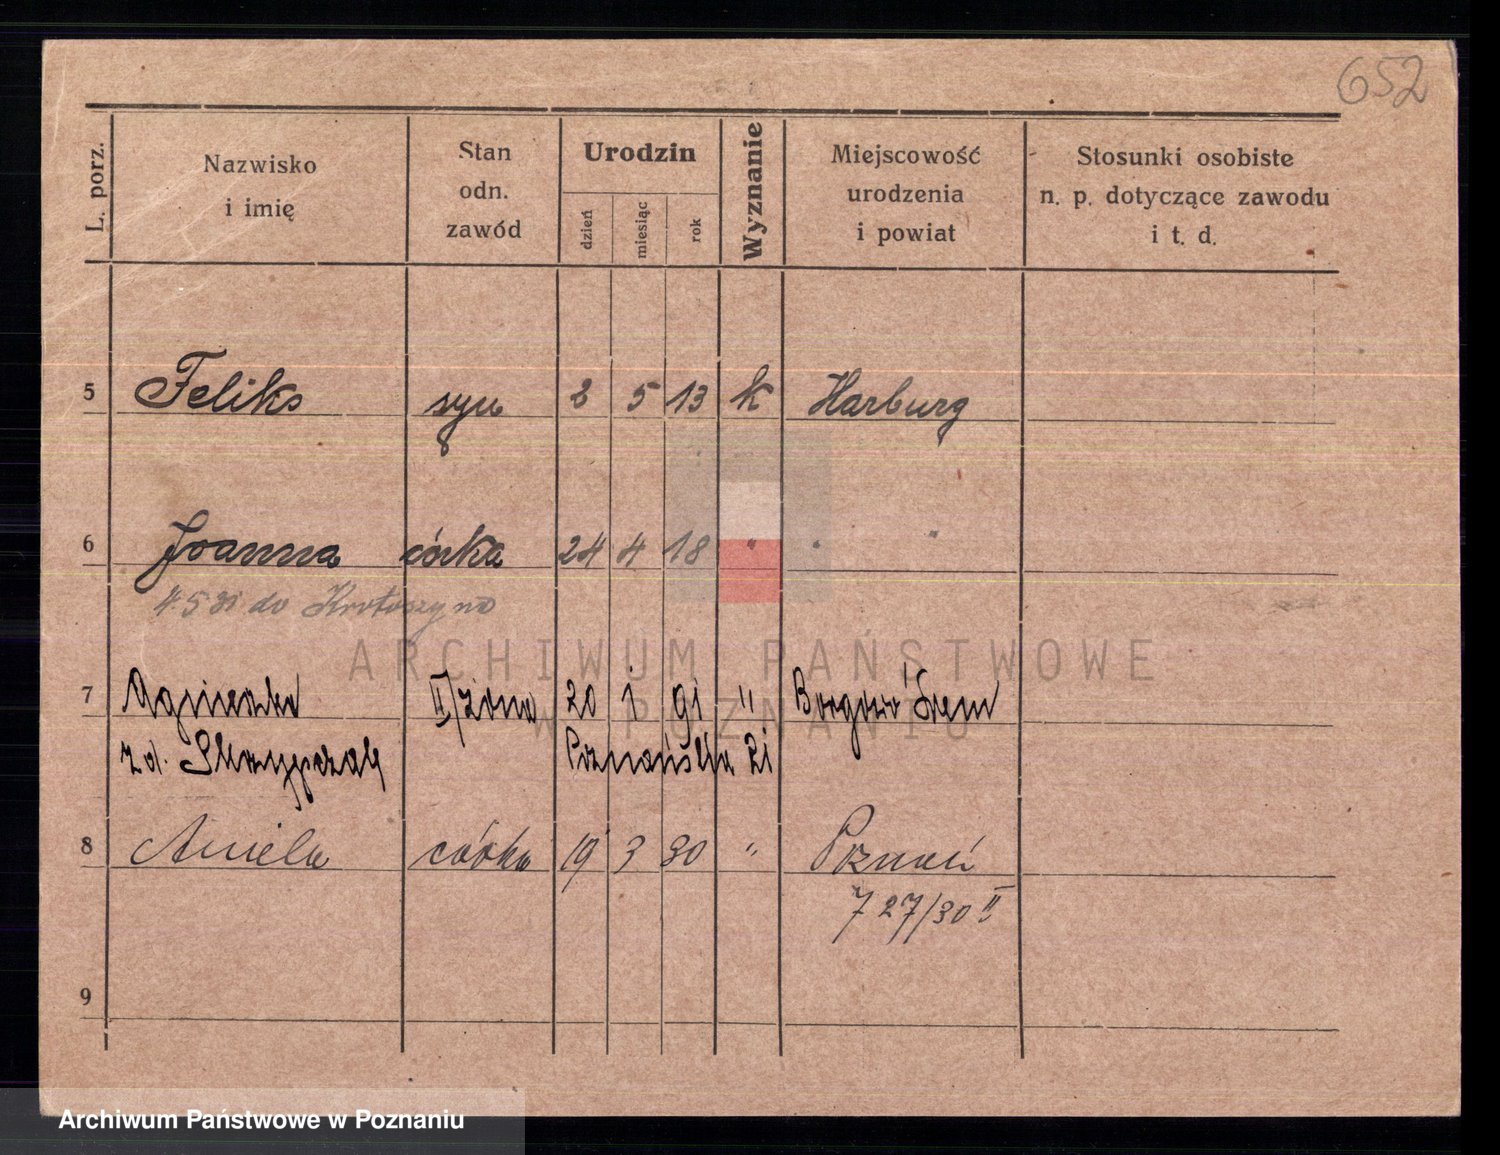 652
L. porz.
Nazwisko i imię
Stan odn. zawód
Urodzin
dzień miesiąc rok
Wyznanie
Miejscowość urodzenia i powiat
Stosunki osobiste n. p. dotyczące zawodu i t. d.
5 Feliks syn 2 5 13 k Harburg
6 Joanna córka 24 4 18 " " "
4.5 31 do Krotoszyna
ARCHIWUM PAŃSTWOWE
W POZNANIU
7 Agnieszka II/żona 20 1 91 " Borgowo Śrem
z d. Skrzypczak Poznańska 21
8 Aniela córka 19 3 30 " Poznań
727/30 II
9
Archiwum Państwowe w Poznaniu